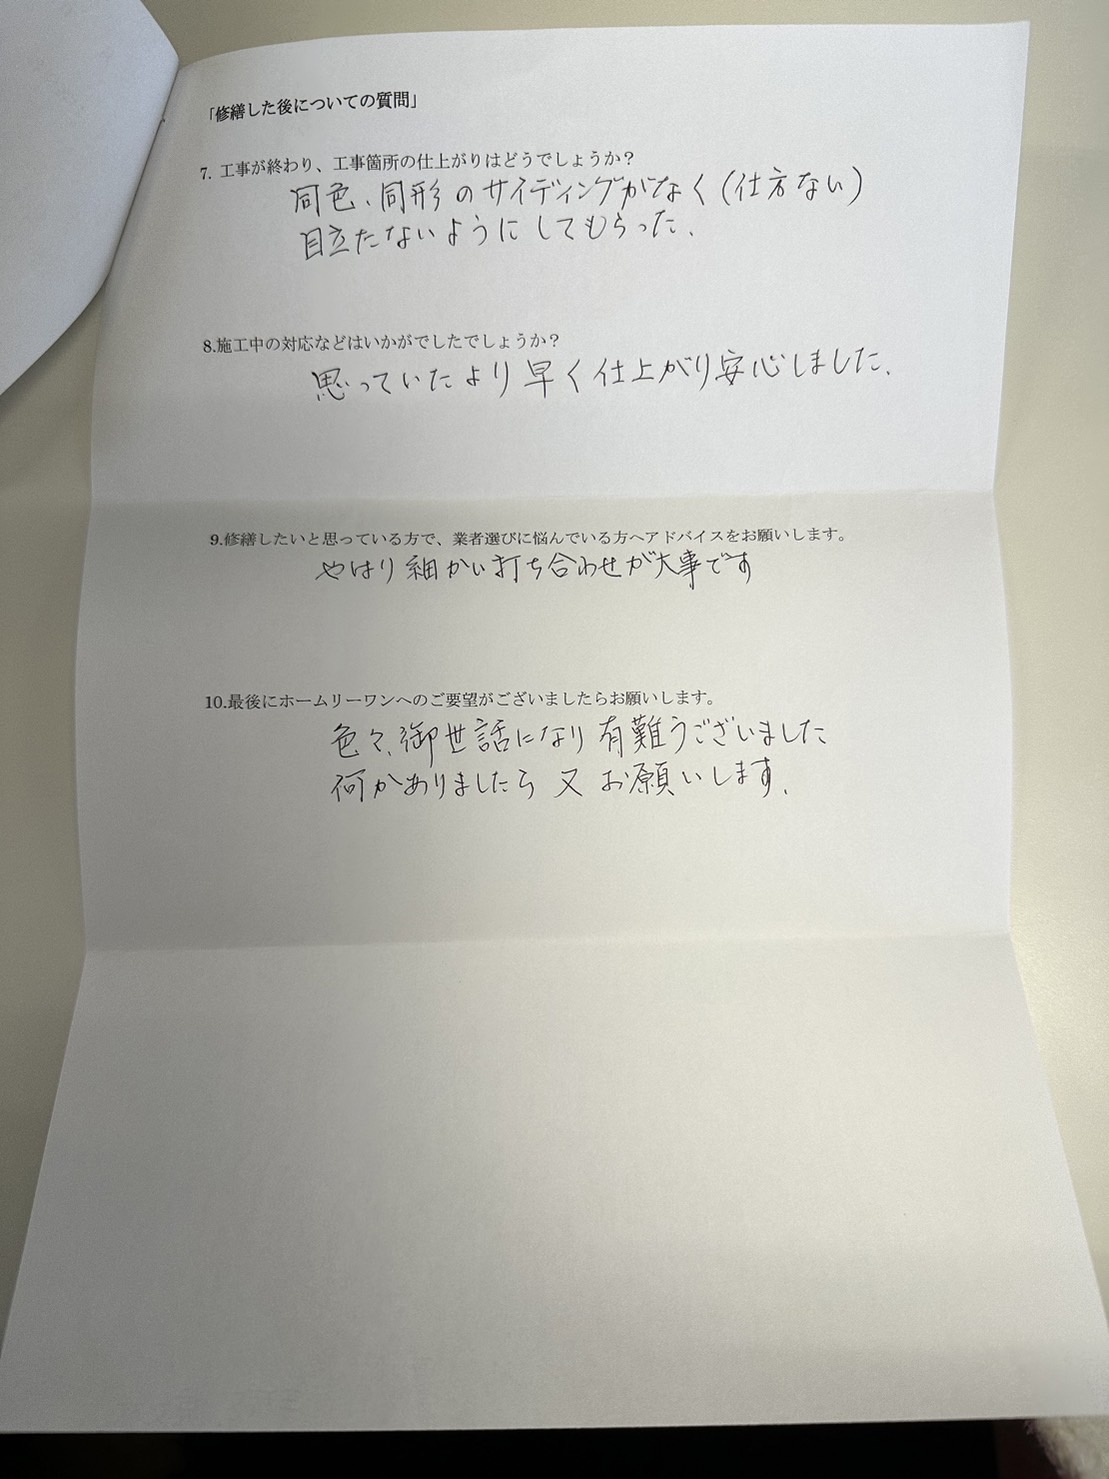 「修繕した後についての質問」
7. 工事が終わり、工事箇所の仕上がりはどうでしょうか？
同色、同形のサイディングがなく(仕方ない)
目立たないようにしてもらった、
8.施工中の対応などはいかがでしたでしょうか？
思っていたより早く仕上がり安心しました、
9.修繕したいと思っている方で、業者選びに悩んでいる方へアドバイスをお願いします。
やはり細かい打ち合わせが大事です
10.最後にホームリーワンへのご要望がございましたらお願いします。
色々、御世話になり有難うございました
何かありましたら又お願いします、